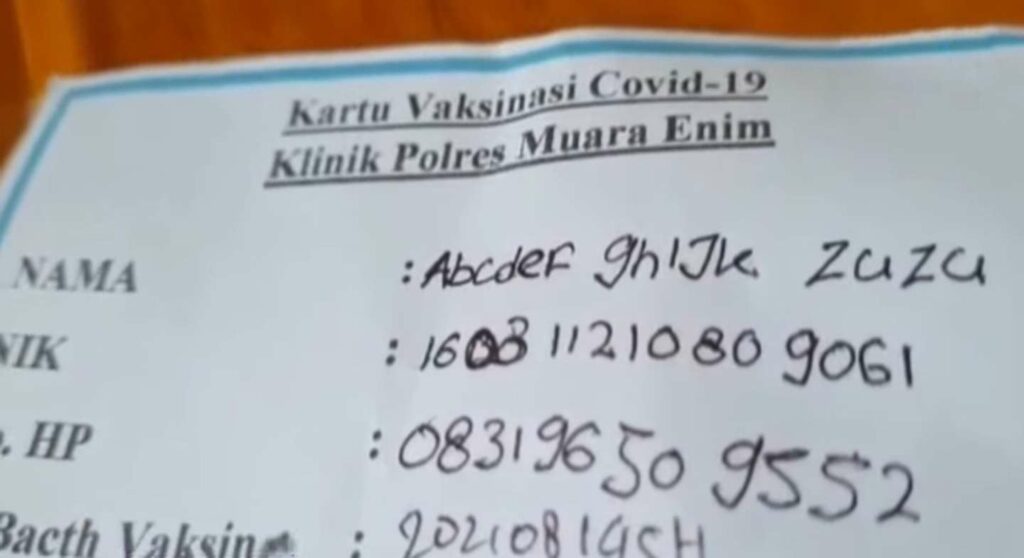 Kartu Vaksinasi Covid-19
Klinik Polres Muara Enim
NAMA : Abcdef ghIJk. ZuZu
NIK : 1608 1121080 9061
. HP : 0831 9650 9552
Bacth Vaksin :